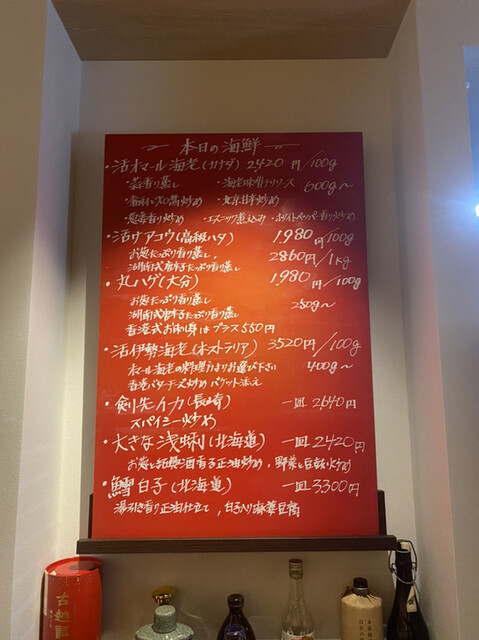 本日の海鮮
・活オマール海老(カナダ) 2420円/100g
・蒜香り蒸し ・海老味噌クリソース 600g〜
・葱姜香り炒め ・エスニック煮込み ・ホワイトペッパー香り炒め
・活アコウ(高級ハタ) 1,980円/100g
お葱たっぷり香り蒸し 2860円/1kg
湖南式唐辛子たっぷり香り蒸し
・丸ハゲ(大分) 1,980円/100g
お葱たっぷり香り蒸し
湖南式唐辛子たっぷり香り蒸し 250g〜
香港式お刺身はプラス550円
・活伊勢海老(オーストラリア) 3520円/100g
オマール海老の料理方よりお選び下さい 400g〜
香港バターチーズ炒め バゲット添え
・剣先イカ(長崎) 一皿 2,640円
スパイシー炒め
・大きな浅蜊(北海道) 一皿 2,420円
お葱と紹興酒香る正油炒め,野菜と豆鼓炒め
・鱈白子(北海道) 一皿 3300円
湯引き香り正油仕立て,白子入り麻婆豆腐
古越龍